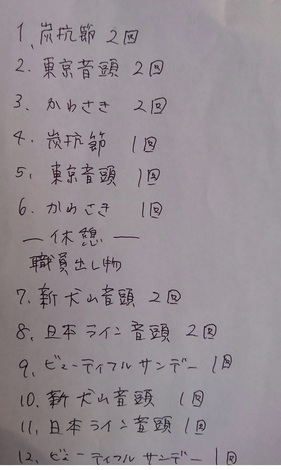 1、炭坑節 2回
2. 東京音頭 2回
3. かわさき 2回
4. 炭坑節 1回
5. 東京音頭 1回
6. かわさき 1回
―休憩―
職員出し物
7. 新犬山音頭 2回
8. 日本ライン音頭 2回
9. ビューティフルサンデー 1回
10. 新犬山音頭 1回
11. 日本ライン音頭 1回
12. ビューティフルサンデー 1回